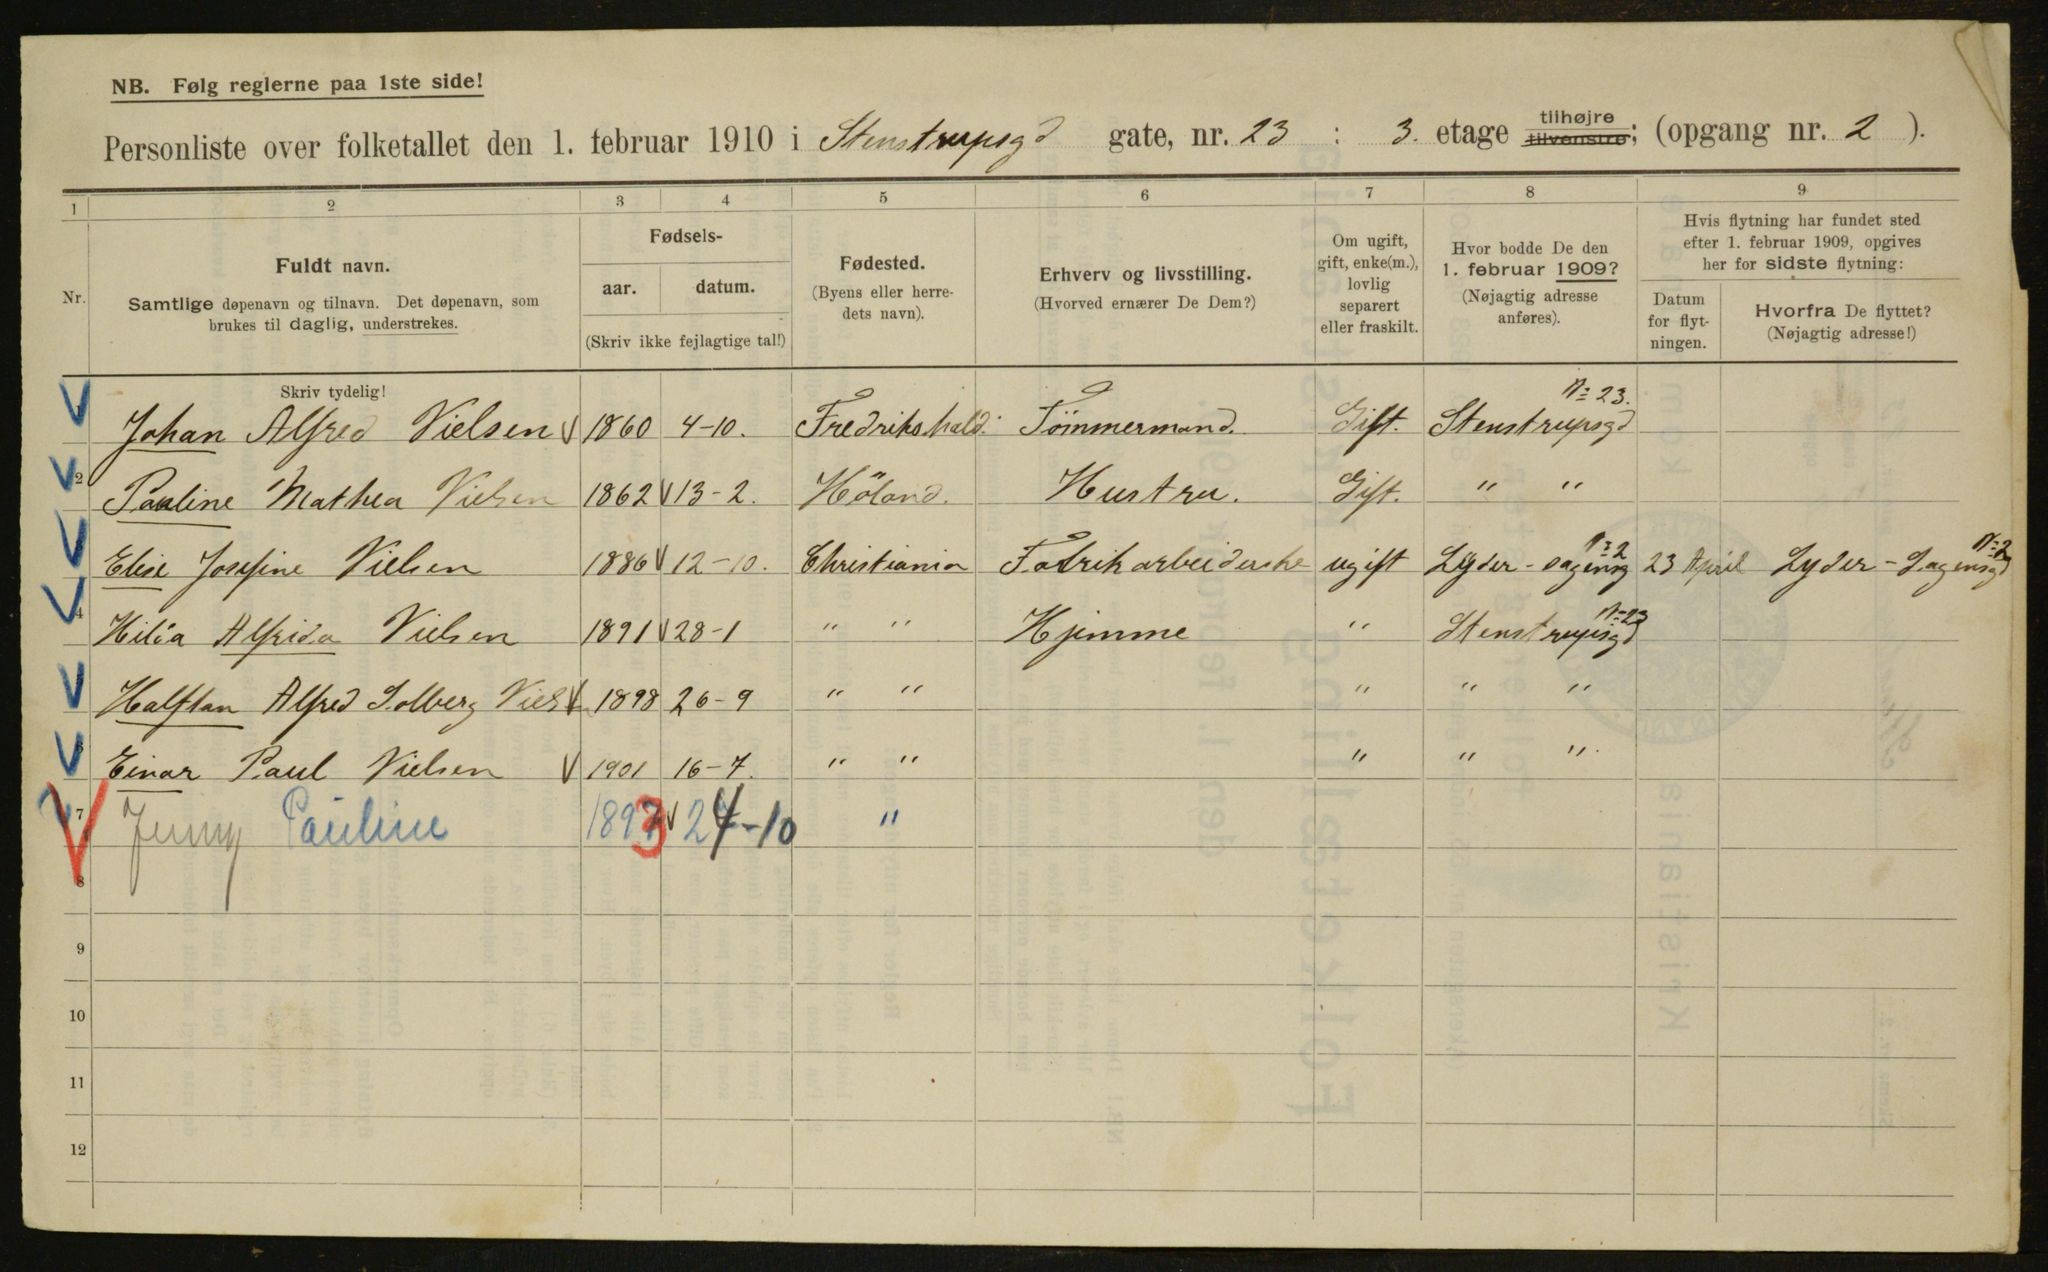 NB. Følg reglerne paa 1ste side!
Personliste over folketallet den 1. februar 1910 i Stenstrupsgd gate, nr. 23 : 3. etage tilhøjre tilvenstre; (opgang nr. 2 ).
1 2 3 4 5 6 7 8 9
Nr.
Fuldt navn.
Samtlige døpenavn og tilnavn. Det døpenavn, som
brukes til daglig, understrekes.
Fødsels-
aar. datum.
(Skriv ikke fejlagtige tal!)
Fødested.
(Byens eller herre-
dets navn).
Erhverv og livsstilling.
(Hvorved ernærer De Dem?)
Om ugift,
gift, enke(m.),
lovlig
separert
eller fraskilt.
Hvor bodde De den
1. februar 1909?
(Nøjagtig adresse
anføres).
Hvis flytning har fundet sted
efter 1. februar 1909, opgives
her for sidste flytning:
Datum
for flyt-
ningen.
Hvorfra De flyttet?
(Nøjagtig adresse!)
Skriv tydelig!
Johan Alfred Nielsen 1860 4-10. Fredrikshald. Tömmermand. Gift. Stenstrupsgd No 23.
2 Pauline Mathea Nielsen 1862 13-2. Höland. Hustru. Gift. " "
Elise Josefine Nielsen 1886 12-10. Christiania Fabrikarbeiderske ugift Lyder-sagensg No 2 23 April Lyder-Sagensgd No 2
4 Hilda Alfrida Nielsen 1891 28-1 " " Hjemme " Stenstrupsgd No 23
Halfdan Alfred Solberg Niels 1898 26-9 " " " " "
6 Einar Paul Nielsen 1901 16-7. " " " " "
7 Jenny Pauline 1893 24-10 "
8
9
10
11
12